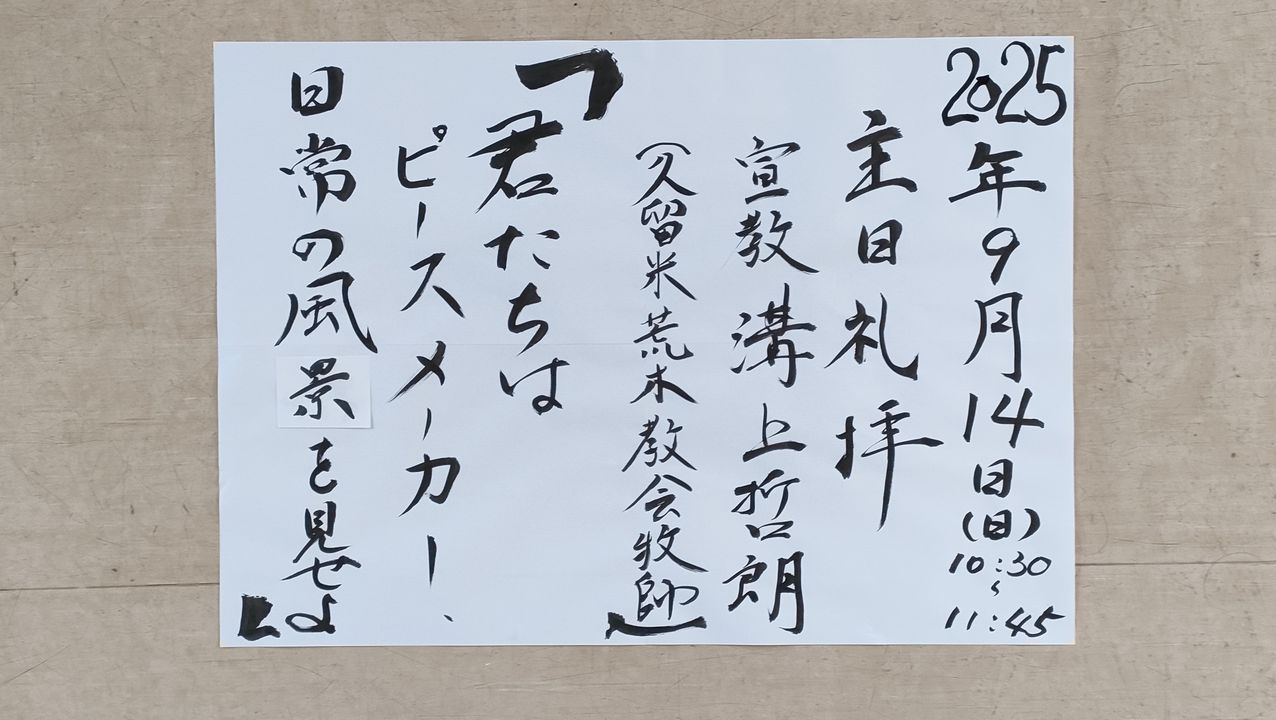 2025年9月14日(日)10:30〜11:45
主日礼拝
宣教 溝上哲朗
(久留米荒木教会牧師)
「君たちは
ピースメーカー、
日常の風景を見せよ」